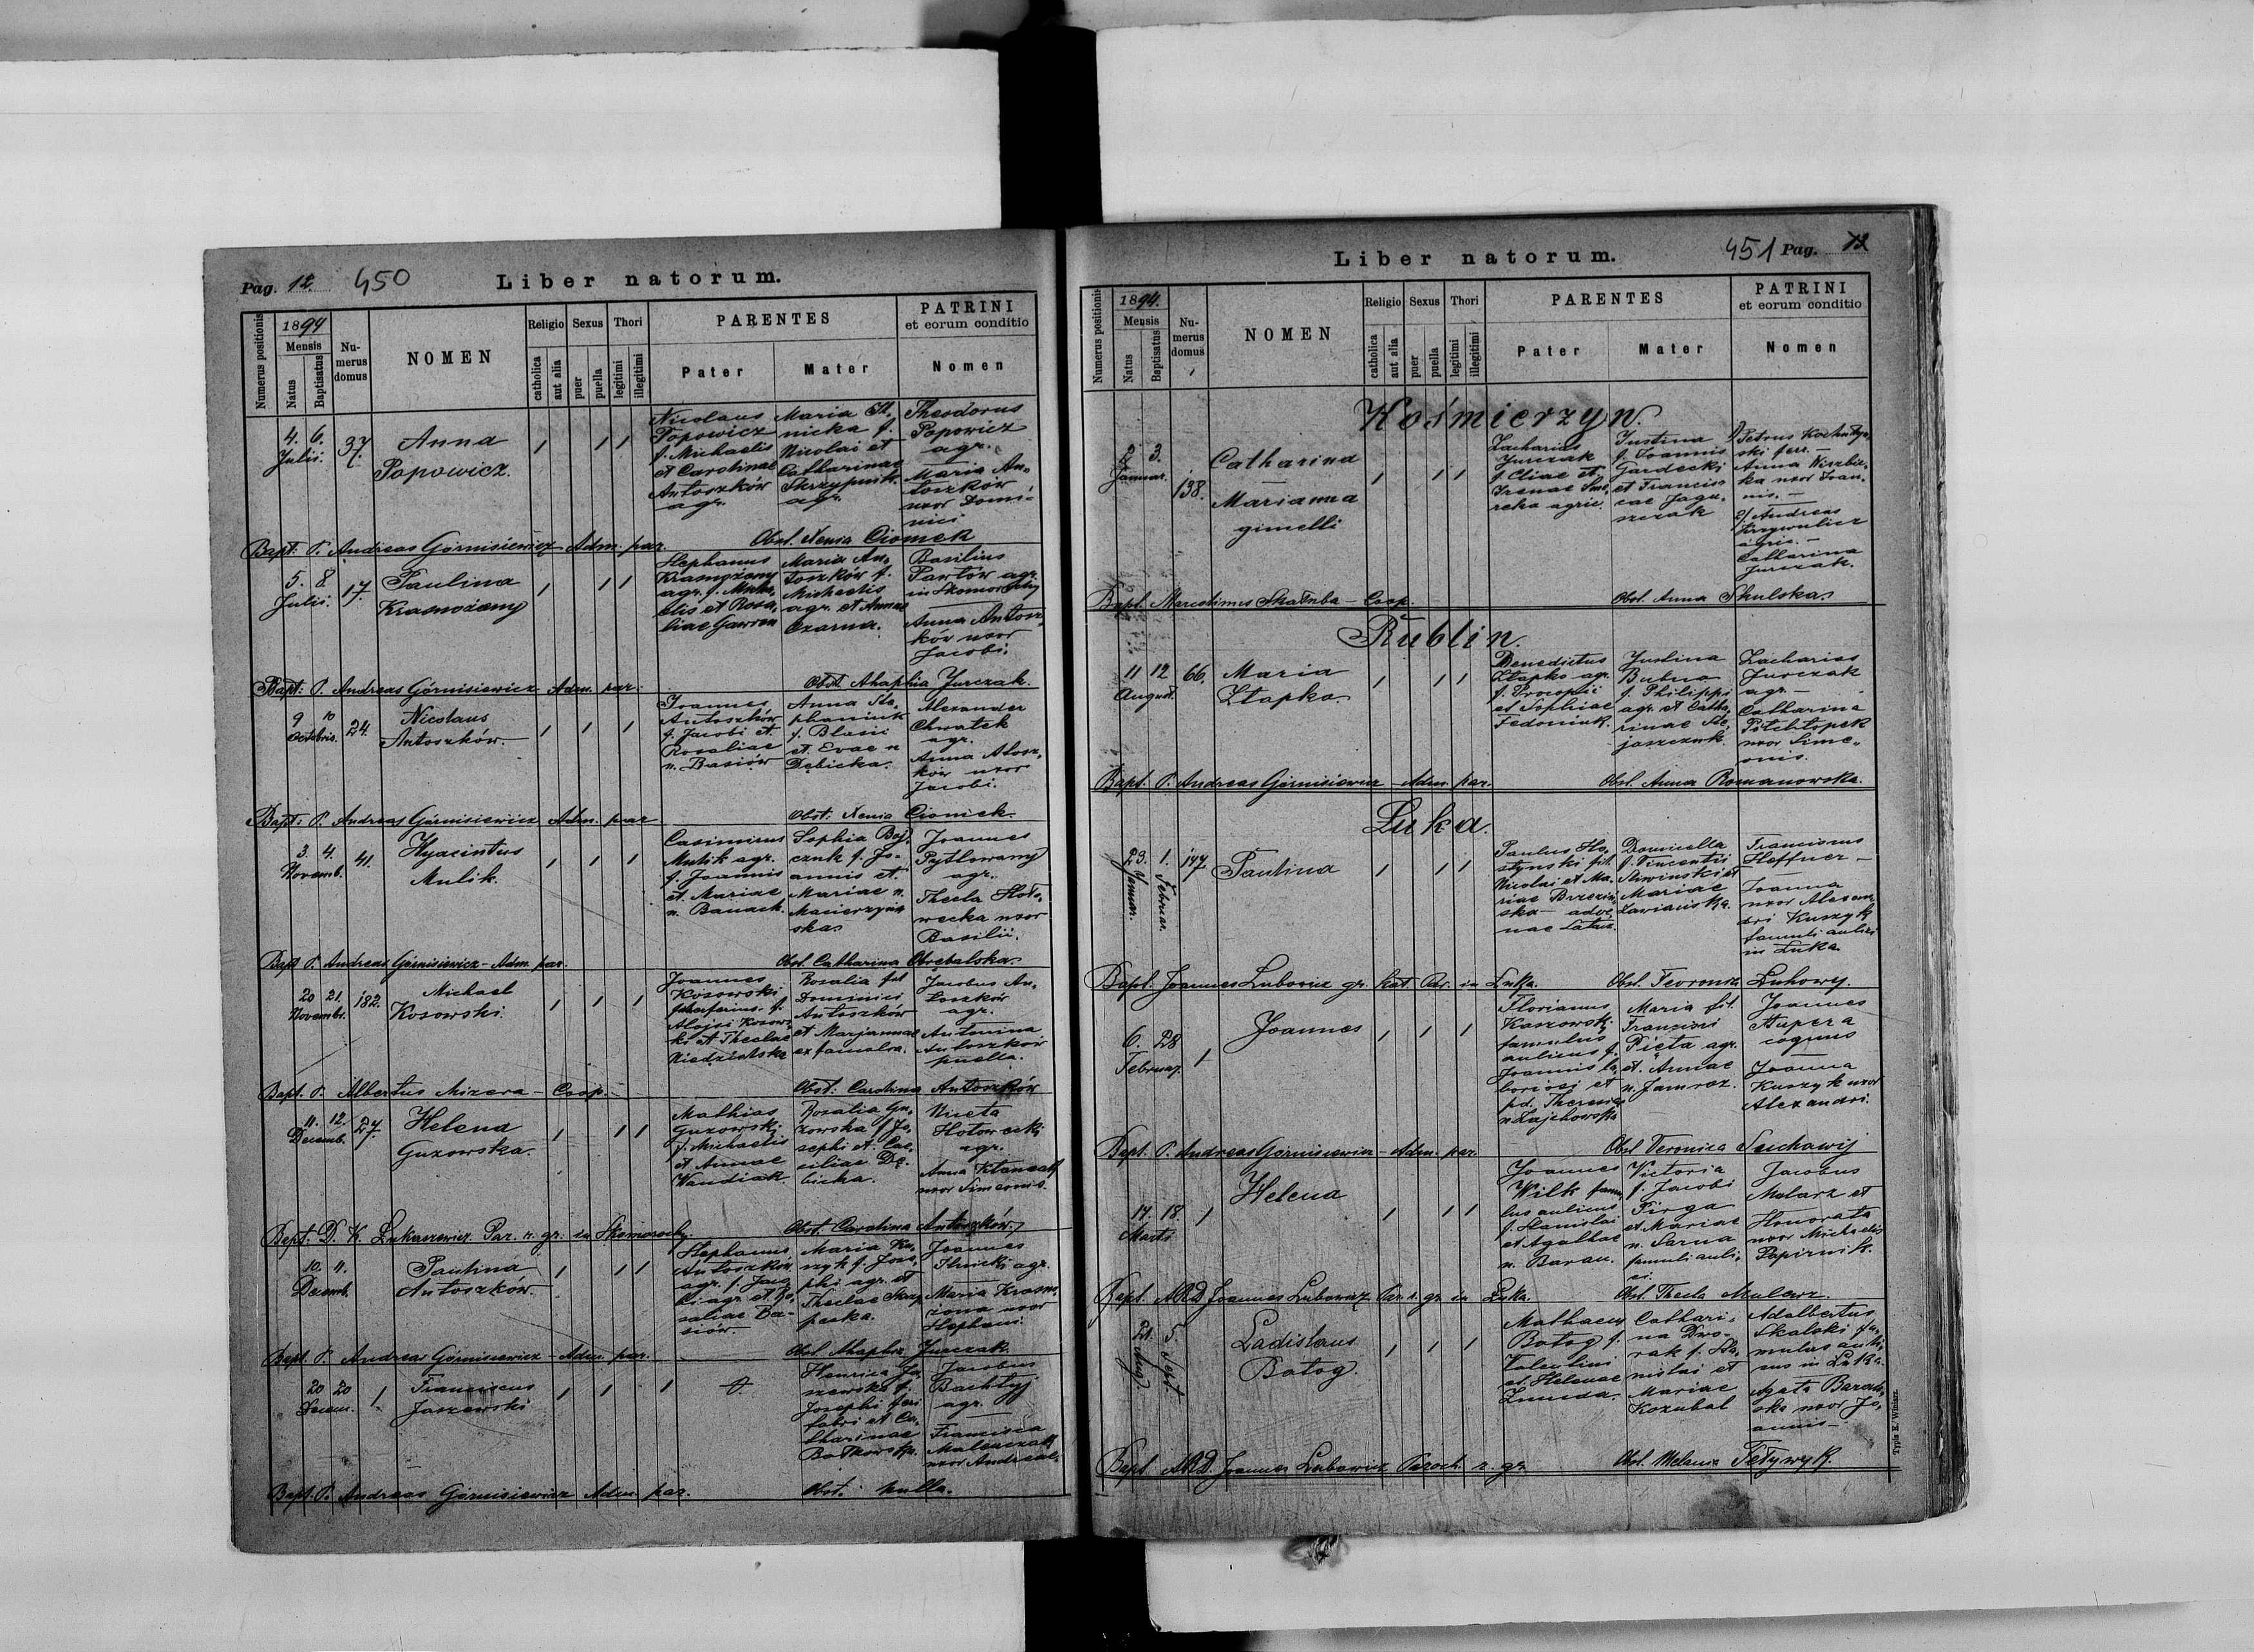 Pag. 12. 450 Liber natorum.
Numerus positionis
1894
Mensis
Natus
Baptisatus
Numerus domus
NOMEN
Religio
catholica
aut alia
Sexus
puer
puella
Thori
legitimi
illegitimi
PARENTES
Pater
Mater
PATRINI
et eorum conditio
Nomen
4. 6.
Julii.
37.
Anna
Popowicz.
Nicolaus
Popowicz
f. Michaelis
et Carolinae
Antoszków
agr.
Maria
nicka f.
Nicolai et
Catharinae
agr.
Theodorus
Popowicz
agr.
Maria An-
toszków
uxor Domi-
nici
Bapt. P. Andreas Górnisiewicz - Adm. par. Obst. Xenia Cionek
5. 8.
Julii.
17.
Paulina
Krasnożony
Stephanus
Krasnożony
agr. f. Micha-
elis et Rosa-
liae Gawron
Maria An-
toszków f.
Michaelis
agr. et Annae
Czarna.
Basilius
Pawlów agr.
in Skomorochy
Anna Antosz-
ków uxor
Jacobi.
Bapt: P. Andreas Górnisiewicz Adm. par. Obst. Ahaphia Jurczak.
9 10
Octobris.
24.
Nicolaus
Antoszków.
Joannes
Antoszków
f. Jacobi et
Rosaliae
n. Basiów
Anna Ste-
phaniuk
f. Blasii
et Evae n
Dębicka.
Alexander
Chwatek
agr.
Anna
ków uxor
Jacobi.
Bapt: P. Andreas Górnisiewicz Adm. par Obst: Xenia Cionek.
3. 4.
Novemb.
41.
Hyacintus
Mulik.
Casimirus
Mulik agr.
f. Joannis
et Mariae
n. Banach.
Sophia Boj-
czuk f. Jo-
annis et
Mariae n.
Macierzyń-
ska
Joannes
Pytlowany
agr.
Thecla Hoło-
wecka uxor
Basilii.
Bapt P. Andreas Górnisiewicz - Adm. par. Obst. Catharina Obrębalska.
20 21.
Novembr.
182.
Michael
Kosowski.
Joannes
Kosowski
f.
Aloisi Kosow-
ki et Theclae
Niedzialska
Rosalia fil
Dominici
Antoszków
et Marjannae
ex famalra.
Jacobus An-
toszków
agr.
Antonina
Antoszków
puella.
Bapt. P. Albertus Mizera - Coop. Obst: Carolina Antoszków
11. 12.
Decemb.
27.
Helena
Guzowska.
Mathias
Guzowski
f. Michaelis
et Annae
Wandiak.
Rosalia Gu-
zowska f. Jo-
sephi et Cae-
ciliae Dę-
bicka.
Niceta
Hołowecki
agr.
Anna
uxor Simeonis.
Bapt: D. K. Łukasiewicz Par. r. gr. in Skomorochy. Obst. Carolina Antoszków.
10. 11.
Decemb.
Paulina
Antoszków.
Stephanus
Antoszków
agr. f. Jaco-
bi agr. et Ro-
saliae Ba-
siów.
Maria Ku-
szyk f. Jose-
phi agr. et
Theclae
Joannes
Ilnicki agr.
Maria Krasno-
żona uxor
Stephani
Bapt. P. Andreas Górnisiewicz - Adm. par. Obst. Ahaphia Jurczak.
20 20
Decem.
1
Franciscus
Jaszewski
Henrica Ja-
szewska f.
Josephi feri
fabri et Ca-
tharinae
Jacobus
Bachtyj
agr.
Francisca
uxor Andreae.
Bapt. P. Andreas Górnisiewicz Adm. par. Obst. nulla.
Liber natorum. 451 Pag. 13
Numerus positionis
1894.
Mensis
Natus
Baptisatus
Numerus domus
NOMEN
Religio
catholica
aut alia
Sexus
puer
puella
Thori
legitimi
illegitimi
PARENTES
Pater
Mater
PATRINI
et eorum conditio
Nomen
Kośmierzyn.
2 3.
Januar.
138.
Catharina
Marianna
gimelli
Zacharias
Jurczak
f. Eliae et
Irenae
agric.
Justina
f. Joannis
Gardecki
et Francis-
cae Jagu-
szczak
1) Petrus
ski ferr. -
Anna
ka uxor Joan-
nis. -
2) Andreas
agric. -
Catharina
Jurczak.
Bapt. Marcelinus Skałuba - Coop. Obst. Anna Skulska.
Rublin.
11 12
August.
66.
Maria
Złapko.
Benedictus
Złapko agr.
f. Procopii
et Sophiae
Fedoniuk.
Justina
Bubna
f. Philippi
agr. et Catha-
rinae
Zacharias
Jurczak
agr. -
Catharina
uxor Sime-
onis.
Bapt. P. Andreas Górnisiewicz - Adm. par. Obst. Anna Romanowska.
Łuka.
23. 1.
Januar. Februar.
147
Paulina
Paulus
fil.
Nicolai et Ma-
riae Brzeziń-
ska -
Domicella
f. Vincentii
et
Mariae
Franciscus
Heffner -
Joanna
uxor Alexan-
dri Kuszyk
famuli aulici
in Łuka
Bapt. Joannes Lubowicz gr. kat. Par. in Łuka. Obst. Feoronia Łuhowy.
6. 28
Februar.
1
Joannes
Florianus
Kaszowski
famulus
aulicus f.
Joannis la-
boriosi et
pd. Theresiae
Maria fil.
Francisci
Pięta agr.
et Annae
n. Jamroz.
Joannes
Stupera
coquus
Joanna
Kuszyk uxor
Alexandri.
Bapt. P. Andreas Górnisiewicz - Adm. par. Obst Veronica
17. 18.
Martii
1
Helena
Joannes
Wilk famu-
lus aulicus
f. Stanislai
et Agathae
n. Baran.
Victoria
f. Jacobi
Pirga
et Mariae
n. Sarna
famuli auli-
ci.
Jacobus
Malarz et
Honorata
uxor Michaelis
Papirnik.
Bapt. ARD Joannes Lubowicz Par. r. gr in Łuka. Obst Thecla Malarz.
21. 5.
Aug Sept
Ladislaus
Botog.
Mathaeus
Botog f.
Valentini
et Helenae
Żmuda.
Cathari-
na Dwo-
rak f. Sta-
nislai et
Mariae
Kozubal
Adalbertus
Skalski fa-
mulus auli-
cus in Łuka.
Agata
uxor Jo-
annis -
Bapt. ARD. Joannes Lubowicz Paroch. r. gr. Obst. Melania Fetywyk.
Typis E. Winiarz.